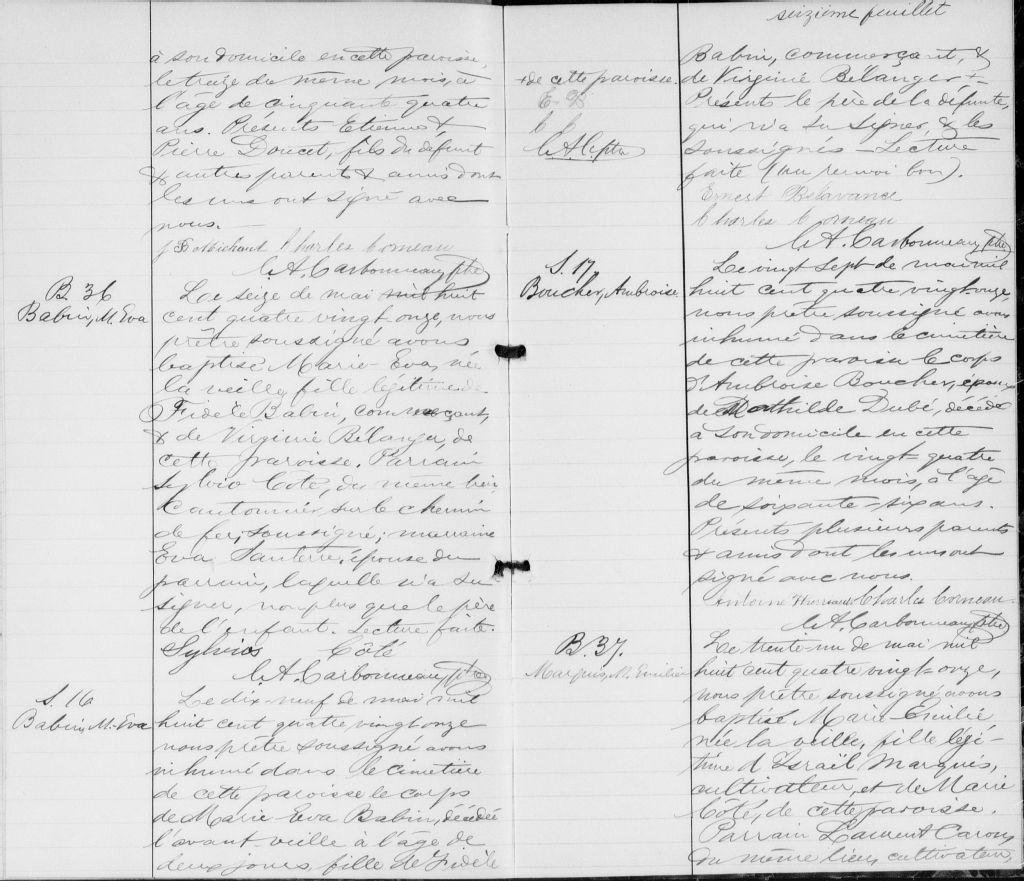 à son domicile en cette paroisse,
le treize du meme mois, à
l'âge de cinquante quatre
ans. Présents Etienne &
Pierre Doucet, fils du défunt
& autres parents & amis dont
les uns ont signé avec
nous.
J Bte Michaud Charles Corneau
C. A. Carbonneau, ptre
B. 36
Babin, M. Eva
Le seize de mai mil huit
cent quatre vingt-onze, nous
prêtre soussigné avons
baptisé Marie-Eva, née
la veille, fille légitime de
Fidèle Babin, commerçant,
& de Virginie Bélanger, de
cette paroisse. Parrain
Sylvio Coté, du meme lieu,
Cantonnier sur le chemin
de fer, soussigné; marraine
Eva Santerre, épouse du
parrain, laquelle n'a su
signer, non plus que le père
de l'enfant. Lecture faite.
Sylvios Côté
C. A. Carbonneau, ptre
S. 16
Babin, M.-Eva
Le dix-neuf de mai mil
huit cent quatre vingt onze
nous prêtre soussigné avons
inhumé dans le cimetière
de cette paroisse le corps
de Marie Eva Babin, décédée
l'avant-veille à l'âge de
deux jours, fille de Fidèle
seizième feuillet
Babin, commerçant, &
de Virginie Bélanger +
+ de cette paroisse.
E. B
C. C.
C. A. C. ptre
Présents le père de la défunte,
qui n'a su signer, & les
soussignés - Lecture
faite (un renvoi bon).
Ernest Belavance
Charles Corneau
C. A. Carbonneau, ptre
S. 17,
Boucher, Ambroise
Le vingt sept de mai mil
huit cent quatre vingt-onze,
nous prêtre soussigné avons
inhumé dans le cimetière
de cette paroisse le corps
d'Ambroise Boucher, époux
de Mathilde Dubé, décédé
à son domicile en cette
paroisse, le vingt-quatre
du même mois, à l'âge
de soixante-six ans.
Présents plusieurs parents
& amis dont les uns ont
signé avec nous.
Antoine Charles Corneau
C. A. Carbonneau, ptre
B. 37.
Marquis, M. Emilie
Le trente-un de mai mil
huit cent quatre vingt-onze,
nous prêtre soussigné avons
baptisé Marie-Emilie,
née la veille, fille légi-
time d'Israël Marquis,
cultivateur, et de Marie
Côté, de cette paroisse.
Parrain Laurent Caron,
du même lieu, cultivateur,